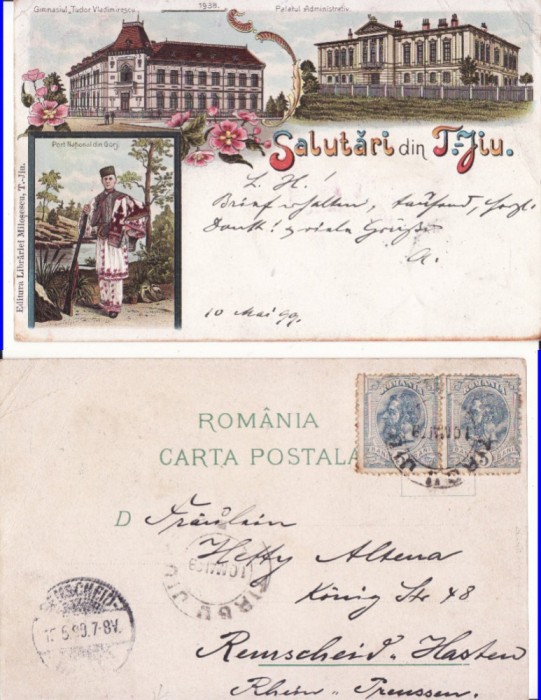 Gimnasiul „Tudor Vladimirescu
1938.
Palatul Administrativ
Salutări din T.-Jiu.
Port National din Gorj
Editura Librăriei Miloșescu, T.-Jiu.
L. H.!
Brief erhalten, tausend, herzl.
Dank! & viele Grüße
A.
10 Mai 99.
ROMANIA
ROMÂNIA
CARTA POSTALA
TIRGU JIU
10 MAI 79
D Fräulein
Hetty Altena
König Str 48
Remscheid-Hasten
Rhein-Preussen.
TIRGU JIU
REMSCHEID-
5.99.7-8V.